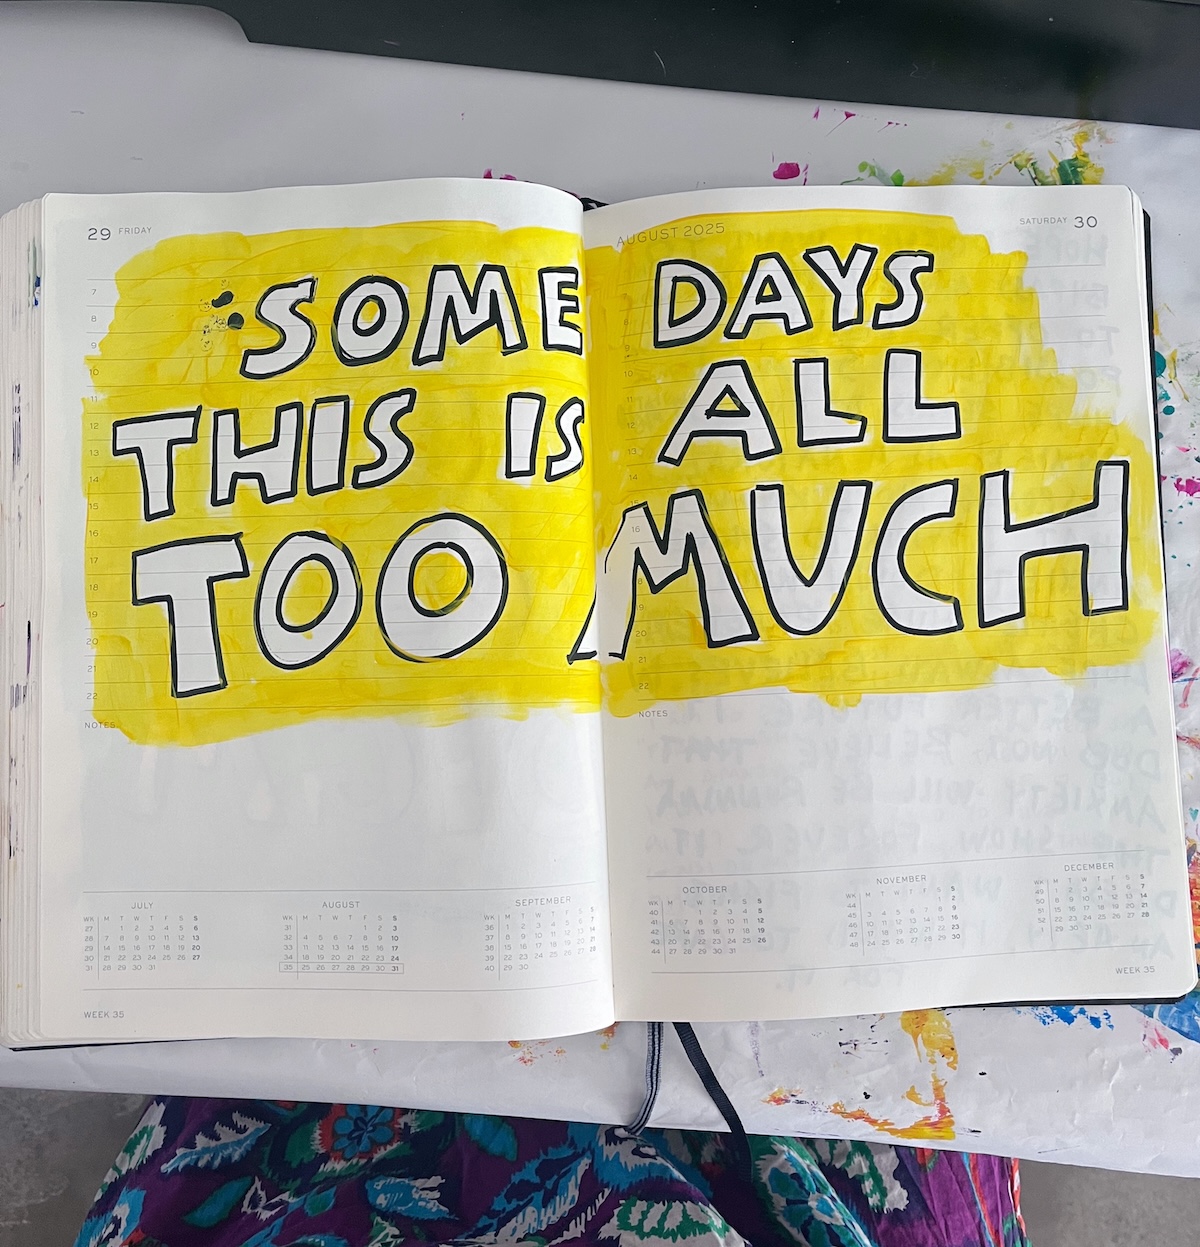 29 FRIDAY
AUGUST 2025
SATURDAY 30
SOME DAYS
THIS IS ALL
TOO MUCH
7
8
9
10
11
12
13
14
15
16
17
18
19
20
21
22
NOTES
8
9
10
11
12
13
14
15
16
19
20
21
22
NOTES
JULY
WK M T W T F S S
27 1 2 3 4 5 6
28 7 8 9 10 11 12 13
29 14 15 16 17 18 19 20
30 21 22 23 24 25 26 27
31 28 29 30 31
AUGUST
WK M T W T F S S
31 1 2 3
32 4 5 6 7 8 9 10
33 11 12 13 14 15 16 17
34 18 19 20 21 22 23 24
35 25 26 27 28 29 30 31
SEPTEMBER
WK M T W T F S S
36 1 2 3 4 5 6 7
37 8 9 10 11 12 13 14
38 15 16 17 18 19 20 21
39 22 23 24 25 26 27 28
40 29 30
OCTOBER
WK M T W T F S S
40 1 2 3 4 5
41 6 7 8 9 10 11 12
42 13 14 15 16 17 18 19
43 20 21 22 23 24 25 26
44 27 28 29 30 31
NOVEMBER
WK M T W T F S S
44 1 2
45 3 4 5 6 7 8 9
46 10 11 12 13 14 15 16
47 17 18 19 20 21 22 23
48 24 25 26 27 28 29 30
DECEMBER
WK M T W T F S S
49 1 2 3 4 5 6 7
50 8 9 10 11 12 13 14
51 15 16 17 18 19 20 21
52 22 23 24 25 26 27 28
1 29 30 31
WEEK 35
WEEK 35